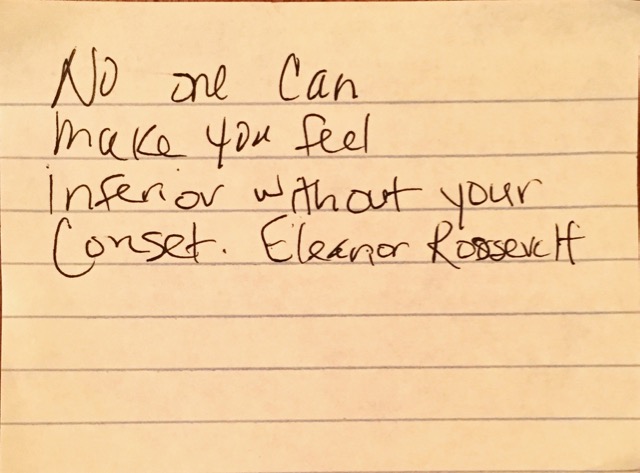 No one can
make you feel
inferior without your
Conset. Eleanor Roosevelt